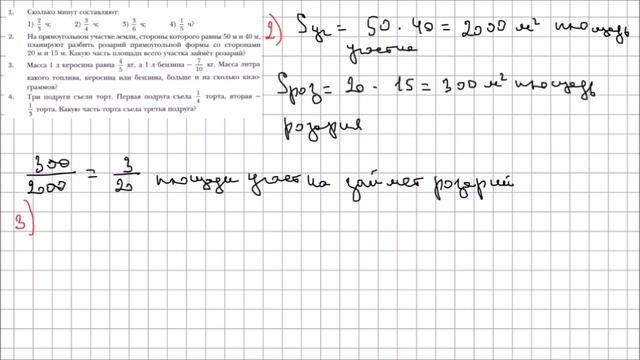 1. Сколько минут составляют:
1) 2/3 ч; 2) 3/4 ч; 3) 3/6 ч; 4) 1/5 ч?
2. На прямоугольном участке земли, стороны которого равны 50 м и 40 м,
планируют разбить розарий прямоугольной формы со сторонами
20 м и 15 м. Какую часть площади всего участка займёт розарий?
3. Масса 1 л керосина равна 4/5 кг, а 1 л бензина — 7/10 кг. Масса литра
какого топлива, керосина или бензина, больше и на сколько кило-
граммов?
4. Три подруги съели торт. Первая подруга съела 1/4 торта, вторая —
1/3 торта. Какую часть торта съела третья подруга?
2) Sуч = 50 · 40 = 2000 м² площадь
участка
Sроз = 20 · 15 = 300 м² площадь
розария
300/2000 = 3/20 площади участка займет розарий
3)